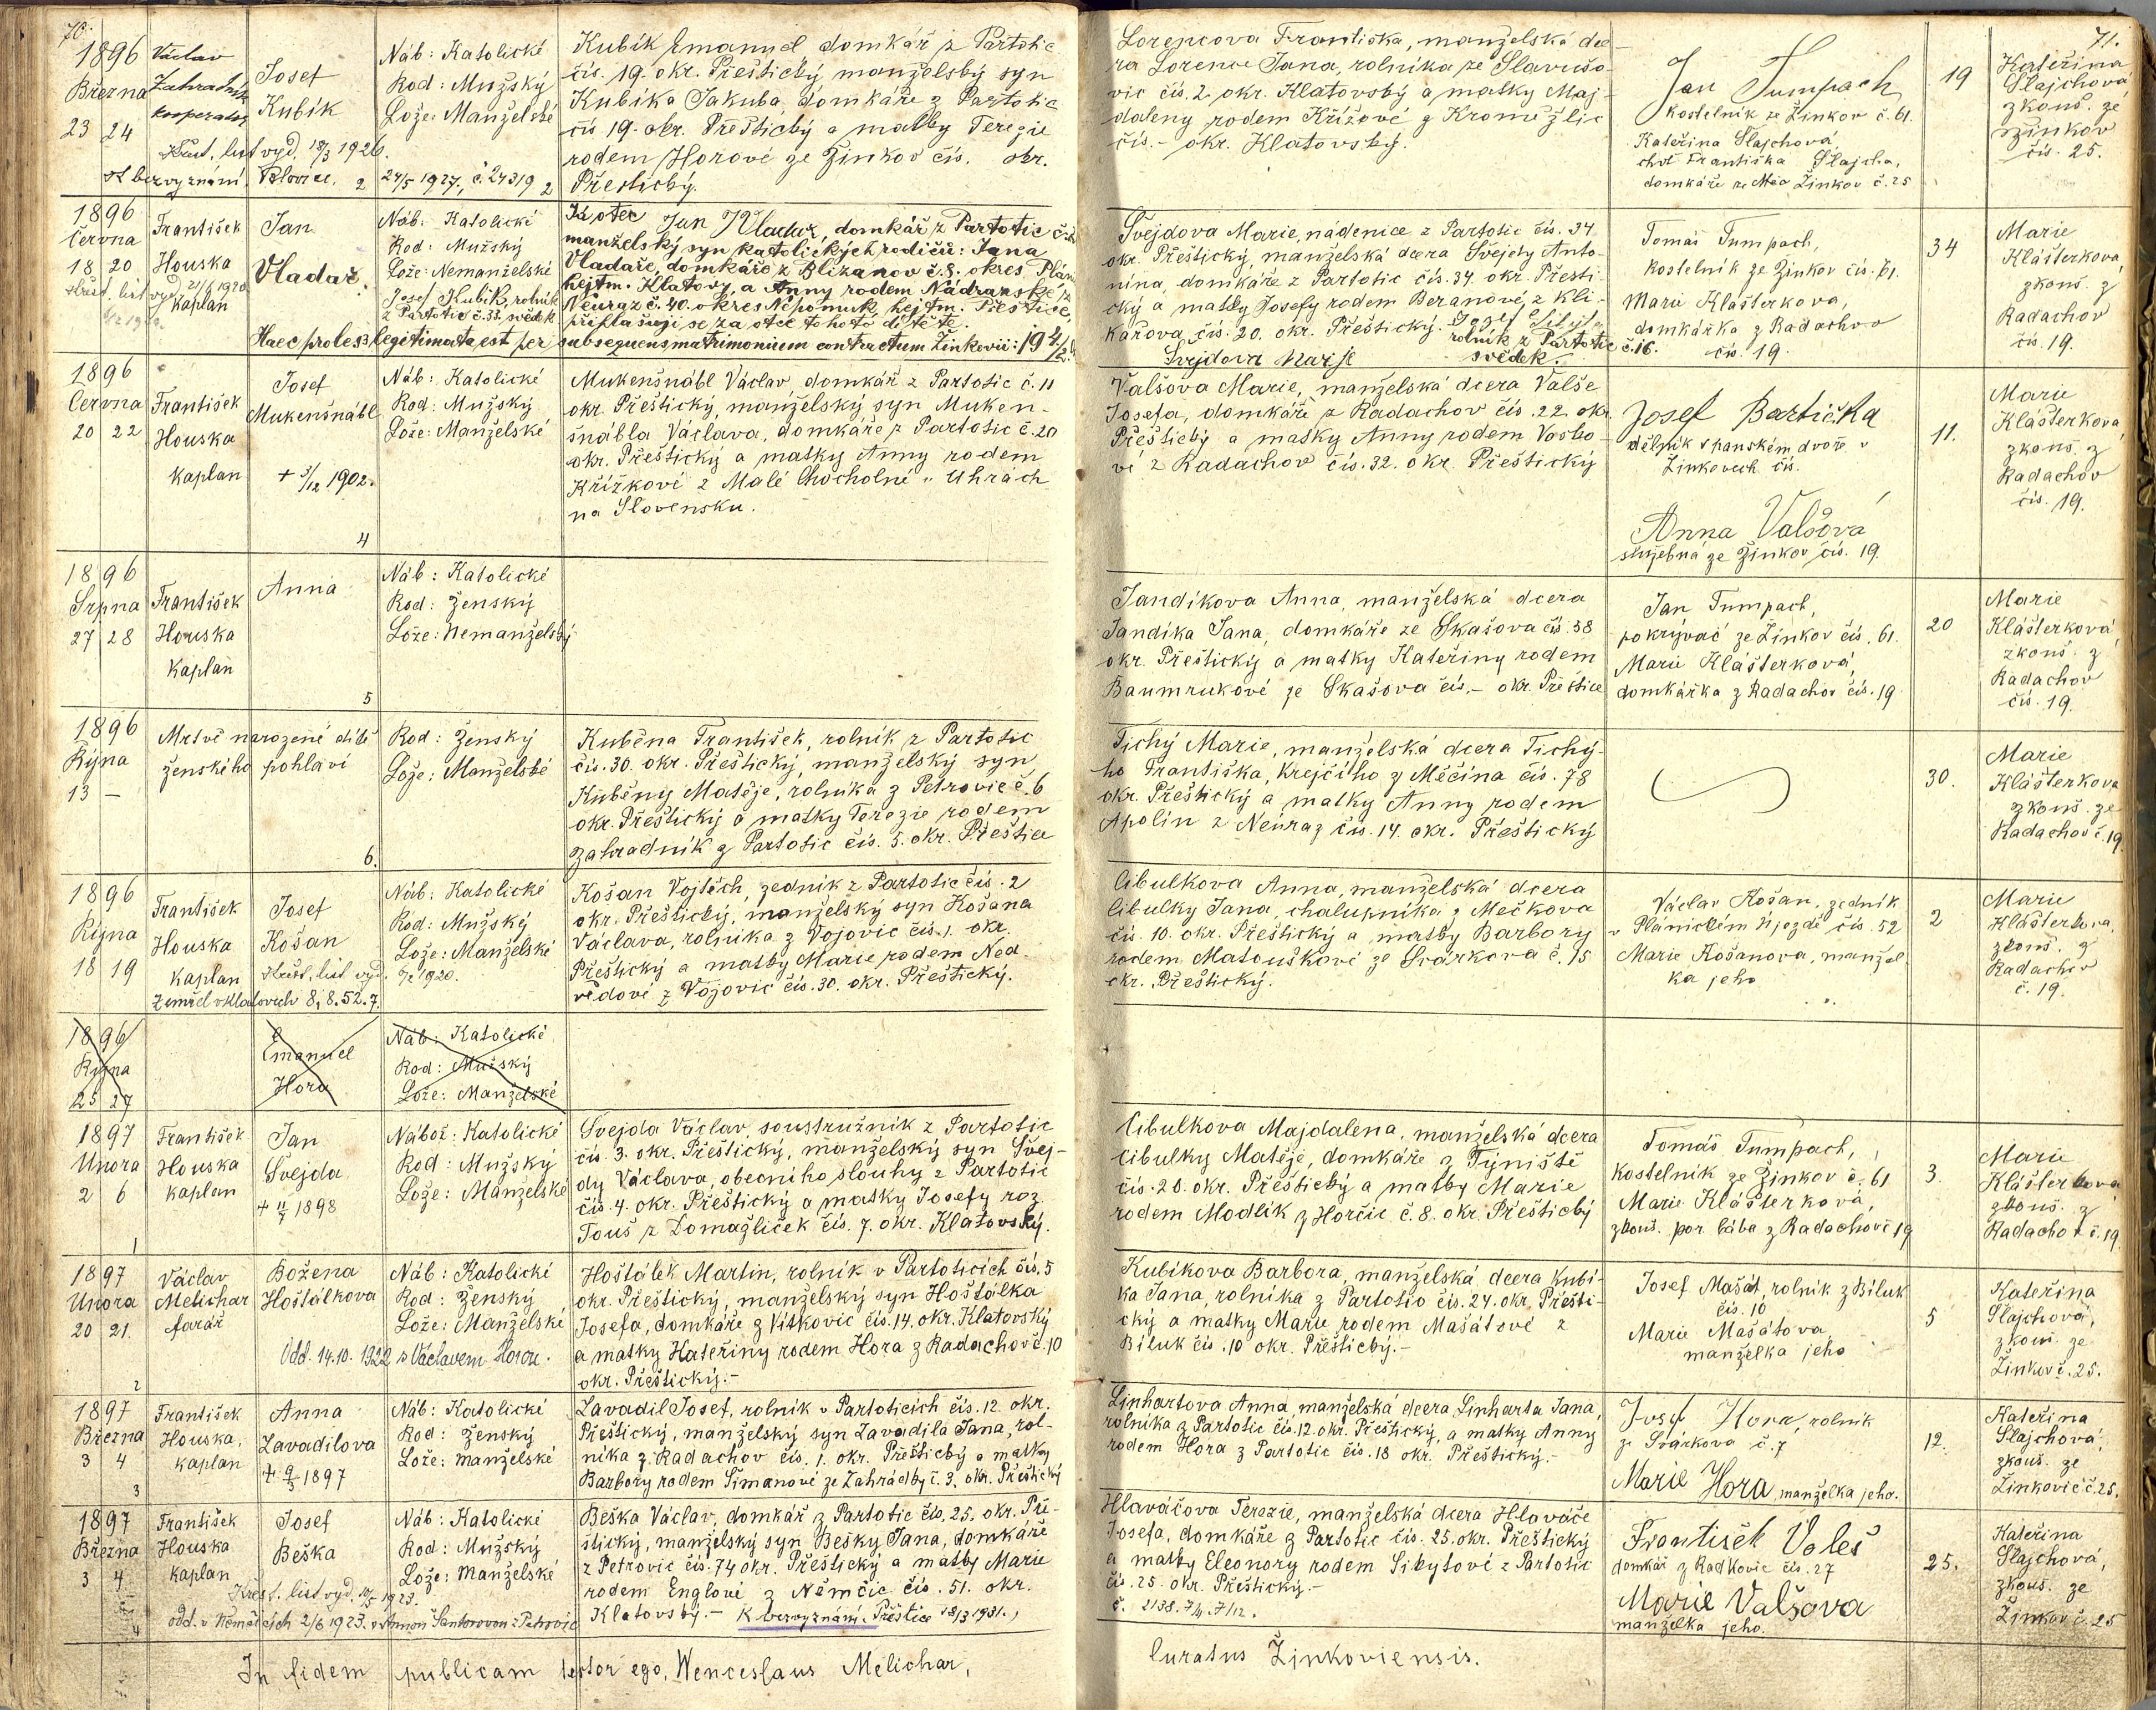 70.
1896
Března
23 24
Václav
Zahradník
kooperator
Josef
Kubík
Náb: Katolické
Rod: Mužský
Lože: Manželské
Křest. list vyd. 18/3 1926.
st. bezvyznání. Blovice. 24/5 1927, č. 24319
2
Kubík Emanuel domkář z Partotic
čís. 19. okr. Přeštický manželský syn
Kubíka Jakuba domkáře z Partotic
čís 19. okr. Přeštický a matky Terezie
rodem Horové ze Žinkov čís. okr.
Přeštický.
1896
Června
18 20
František
Houska
kaplan
Křest. list vyd. 21/6 1920
Jan
Vladař.
Náb: Katolické
Rod: Mužský
Lože: Nemanželské
Josef Kubík, rolník
z Partotic č. 33. svědek
Já otec Jan Vladař, domkář z Partotic
manželský syn katolických rodičů: Jana
Vladaře, domkáře z Blizanov č. 8. okres Plánice
hejtm. Klatovy, a Anny rodem Nádravské z
Neuraz č. 40. okres Nepomuk, hejtm. Přeštice,
přihlašuji se za otce tohoto dítěte.
Haec proles legitimata est per subsequens matrimonium contractum Žinkovii:
3
1896
Června
20 22
František
Houska
kaplan
Josef
Mukenšnábl
+ 3/12 1902.
Náb: Katolické
Rod: Mužský
Lože: Manželské
4
Mukenšnábl Václav, domkář z Partotic č. 11
okr. Přeštický, manželský syn Muken-
šnábla Václava, domkáře z Partotic č. 20
okr. Přeštický a matky Anny rodem
Křížkové z Malé Chocholné v Uhrách
na Slovensku.
1896
Srpna
27 28
František
Houska
kaplan
Anna
Náb: Katolické
Rod: Ženský
Lože: Nemanželský
5
1896
Října
13 —
Mrtvě narozené dítě
ženského pohlaví
Rod: Ženský
Lože: Manželské
6.
Kuběna František, rolník z Partotic
čís. 30. okr. Přeštický, manželský syn
Kuběny Matěje, rolníka z Petrovic č. 6
okr. Přeštický a matky Terezie rodem
Zahradník z Partotic čís. 5. okr. Přeštice
1896
Října
18 19
František
Houska
kaplan
Josef
Košan
Náb: Katolické
Rod: Mužský
Lože: Manželské
Křest. list vyd. 1920.
Zemřel v Klatovech 8. 8. 52.
7.
Košan Vojtěch, zedník z Partotic čís. 2
okr. Přeštický, manželský syn Košana
Václava, rolníka z Vojovic čís. 1. okr.
Přeštický a matky Marie rodem Ned-
vědové z Vojovic čís. 30. okr. Přeštický.
1896
Října
25 27
Emanuel
Hora
Náb: Katolické
Rod: Mužský
Lože: Manželské
1897
Února
2 6
František
Houska
kaplan
Jan
Švejda
+ 11/7 1898
Nábož: Katolické
Rod: Mužský
Lože: Manželské
1
Švejda Václav, soustružník z Partotic
čís. 3. okr. Přeštický, manželský syn Švej-
dy Václava, obecního slouhy z Partotic
čís. 4. okr. Přeštický a matky Josefy roz.
Touš z Domažliček čís. 7. okr. Klatovský.
1897
Února
20 21.
Václav
Melichar
farář
Božena
Hoštálkova
Náb: Katolické
Rod: Ženský
Lože: Manželské
Odd. 14.10. 1922 s Václavem Horou.
2
Hoštálek Martin, rolník v Partoticích čís. 5
okr. Přeštický, manželský syn Hoštálka
Josefa, domkáře z Vitkovic čís. 14. okr. Klatovský
a matky Kateřiny rodem Hora z Radachov č. 10
okr. Přeštický.-
1897
Března
3 4
František
Houska,
kaplan
Anna
Zavadilova
+ 9/5 1897
Náb: Katolické
Rod: Ženský
Lože: Manželské
3
Zavadil Josef, rolník v Partoticích čís. 12. okr.
Přeštický, manželský syn Zavadila Jana, rol-
níka z Radachov čís. 1. okr. Přeštický a matky
Barbory rodem Šimanové ze Zahrádky č. 3. okr. Přeštický
1897
Března
3 4
František
Houska
kaplan
Josef
Beška
Náb: Katolické
Rod: Mužský
Lože: Manželské
Křest. list vyd. 10/5 1923.
odd. v Němčicích 2/6 1923. s Annou Šantorovou z Petrovic
4
Beška Václav, domkář z Partotic čís. 25. okr. Pře-
štický, manželský syn Bešky Jana, domkáře
z Petrovic čís. 74 okr. Přeštický a matky Marie
rodem Englové z Němčic čís. 51. okr.
Klatovský.- K bezvyznání. Přeštice 18/3 1931.
In fidem publicam testor ego, Wenceslaus Melichar,
71.
Lorencova Františka, manželská dce-
ra Lorence Jana, rolníka ze Slavošo-
vic čís. 2 okr. Klatovský a matky Maj-
daleny rodem Křížové z Kroměžlic
čís. - okr. Klatovský.
Jan Tumpach
kostelník ze Žinkov č. 61.
Kateřina Slajchová,
choť Františka Slajcha,
domkáře ze Měs Žinkov č. 25
19
Kateřina
Slajchová
zkouš. ze
Žinkov
čís. 25.
Švejdova Marie, nádenice z Partotic čís. 34.
okr. Přeštický, manželská dcera Švejdy Anto-
nína, domkáře z Partotic čís. 34. okr. Přešti-
cký a matky Josefy rodem Beranové, z Kli-
kařova, čís. 20. okr. Přeštický.
rolník z Partotic č. 16.
Svejdova Marje svědek.
Tomáš Tumpach,
kostelník ze Žinkov čís. 61.
Marie Klášterková,
domkářka z Radachov
čís. 19.
34
Marie
Klášterková
zkouš. z
Radachov
čís. 19.
Valšova Marie, manželská dcera Valše
Josefa, domkáře z Radachov čís. 22 okr.
Přeštický a matky Anny rodem Vosko-
vé z Radachov čís. 32. okr. Přeštický
Josef Bartička
dělník v panském dvoře v
Žinkovech čís.
Anna Valšová
služebná ze Žinkov čís. 19.
11.
Marie
Klášterková
zkouš. z
Radachov
čís. 19.
Jandíkova Anna, manželská dcera
Jandíka Jana, domkáře ze Skašova čís. 38
okr. Přeštický a matky Kateřiny rodem
Baumrukové ze Skašova čís. - okr. Přeštice
Jan Tumpach,
pokrývač ze Žinkov čís. 61.
Marie Klášterková,
domkářka z Radachov čís. 19
20
Marie
Klášterková,
zkouš. z
Radachov
čís. 19.
Tichý Marie, manželská dcera Tichý-
ho Františka, krejčího z Měčína čís. 78
okr. Přeštický a matky Anny rodem
Apolín z Neuraz čís. 14. okr. Přeštický
30.
Marie
Klášterkova
zkouš. ze
Radachov č. 19
Cibulkova Anna, manželská dcera
Cibulky Jana, chalupníka z Mečkova
čís. 10. okr. Přeštický a matky Barbory
rodem Matouškové ze Svárkova č. 15
okr. Přeštický.
Václav Košan, zedník
v Plánickém Újezdě čís. 52
Marie Košanova, manžel-
ka jeho
2
Marie
Klášterkova,
zkouš. z
Radachov
č. 19.
Cibulkova Majdalena, manželská dcera
Cibulky Matěje, domkáře z Týniště
čís. 20. okr. Přeštický a matky Marie
rodem Modlík z Horčic č. 8. okr. Přeštický
Tomáš Tumpach,
kostelník ze Žinkov č. 61
Marie Klášterková,
zkouš. por. bába z Radachov č 19
3.
Marie
Klášterková
zkouš. z
Radachov č. 19.
Kubíkova Barbora, manželská dcera Kubí-
ka Jana, rolníka z Partotic čís. 24. okr. Přešti-
cký a matky Marie rodem Mašátové z
Biluk čís. 10 okr. Přeštický.-
Josef Mašát, rolník z Biluk
čís. 10
Marie Mašátova,
manželka jeho
5
Kateřina
Slajchová,
zkouš. ze
Žinkov č. 25.
Linhartova Anna, manželská dcera Linharta Jana,
rolníka z Partotic čís. 12. okr. Přeštický, a matky Anny
rodem Hora z Partotic čís. 18 okr. Přeštický.-
Josef Hora, rolník
ze Svárkova č. 7
Marie Hora, manželka jeho.
12.
Kateřina
Slajchová,
zkouš. ze
Žinkovic č. 25.
Hlaváčova Terezie, manželská dcera Hlaváče
Josefa, domkáře z Partotic čís. 25. okr. Přeštický
a matky Eleonory rodem Sikytové z Partotic
čís. 25. okr. Přeštický.-
František Valeš
domkář z Radkovic čís. 27
Marie Valšova
manželka jeho.
25.
Kateřina
Slajchová,
zkouš. ze
Žinkov č. 25
Curatus Žinkoviensis.